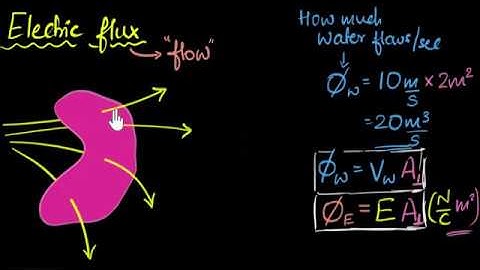 Electric flux
"flow"
How much
water flows/sec
ϕ_w = 10 m/s × 2m²
= 20 m³/s
ϕ_w = V_w A⊥
ϕ_E = E A⊥ (N/C m²)